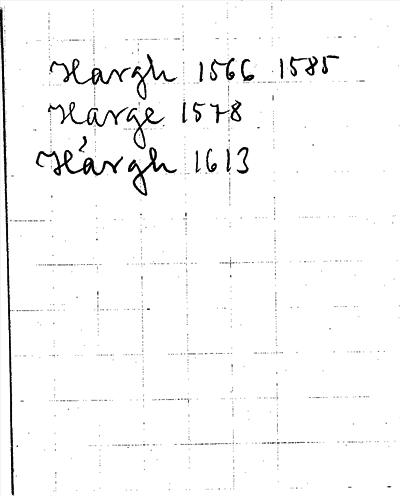 Hargh 1566 1585
Harge 1578
Hárgh 1613